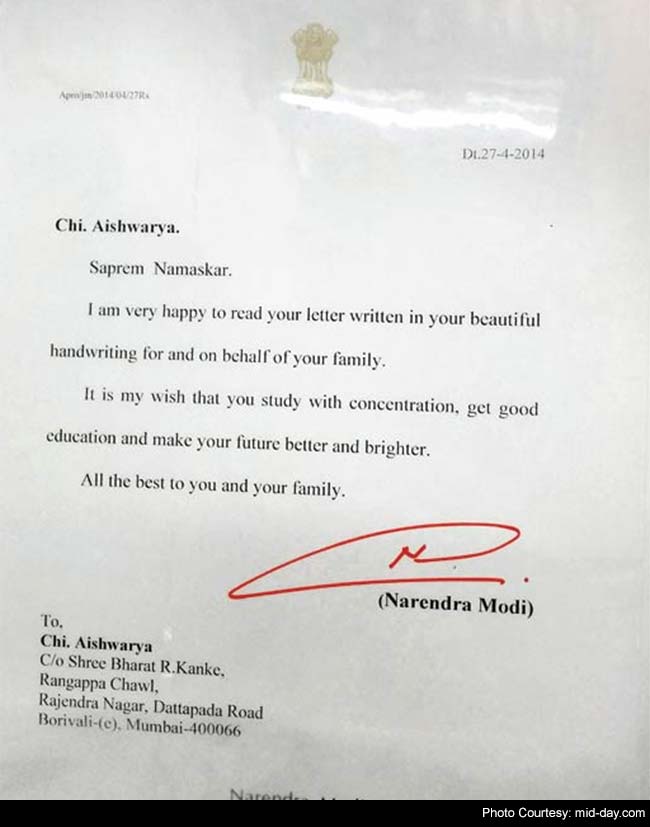 Apro/jm/2014/04/27Rs
Dt.27-4-2014
Chi. Aishwarya.
Saprem Namaskar.
I am very happy to read your letter written in your beautiful
handwriting for and on behalf of your family.
It is my wish that you study with concentration, get good
education and make your future better and brighter.
All the best to you and your family.
(Narendra Modi)
To,
Chi. Aishwarya
C/o Shree Bharat R.Kanke,
Rangappa Chawl,
Rajendra Nagar, Dattapada Road
Borivali-(e), Mumbai-400066
Photo Courtesy: mid-day.com